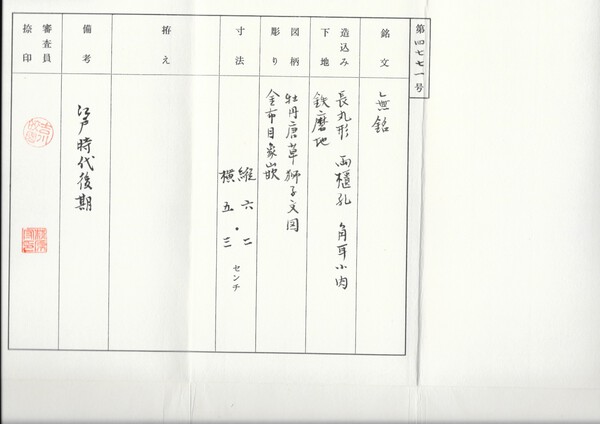 第四七七一号
銘文
無銘
造込み
下地
長丸形 両櫃孔 角耳小肉
鉄磨地
図柄
彫り
牡丹唐草獅子文図
金布目象嵌
寸法
縦 六・二
横 五・三
センチ
拵え
備考
江戸時代後期
審査員
捺印